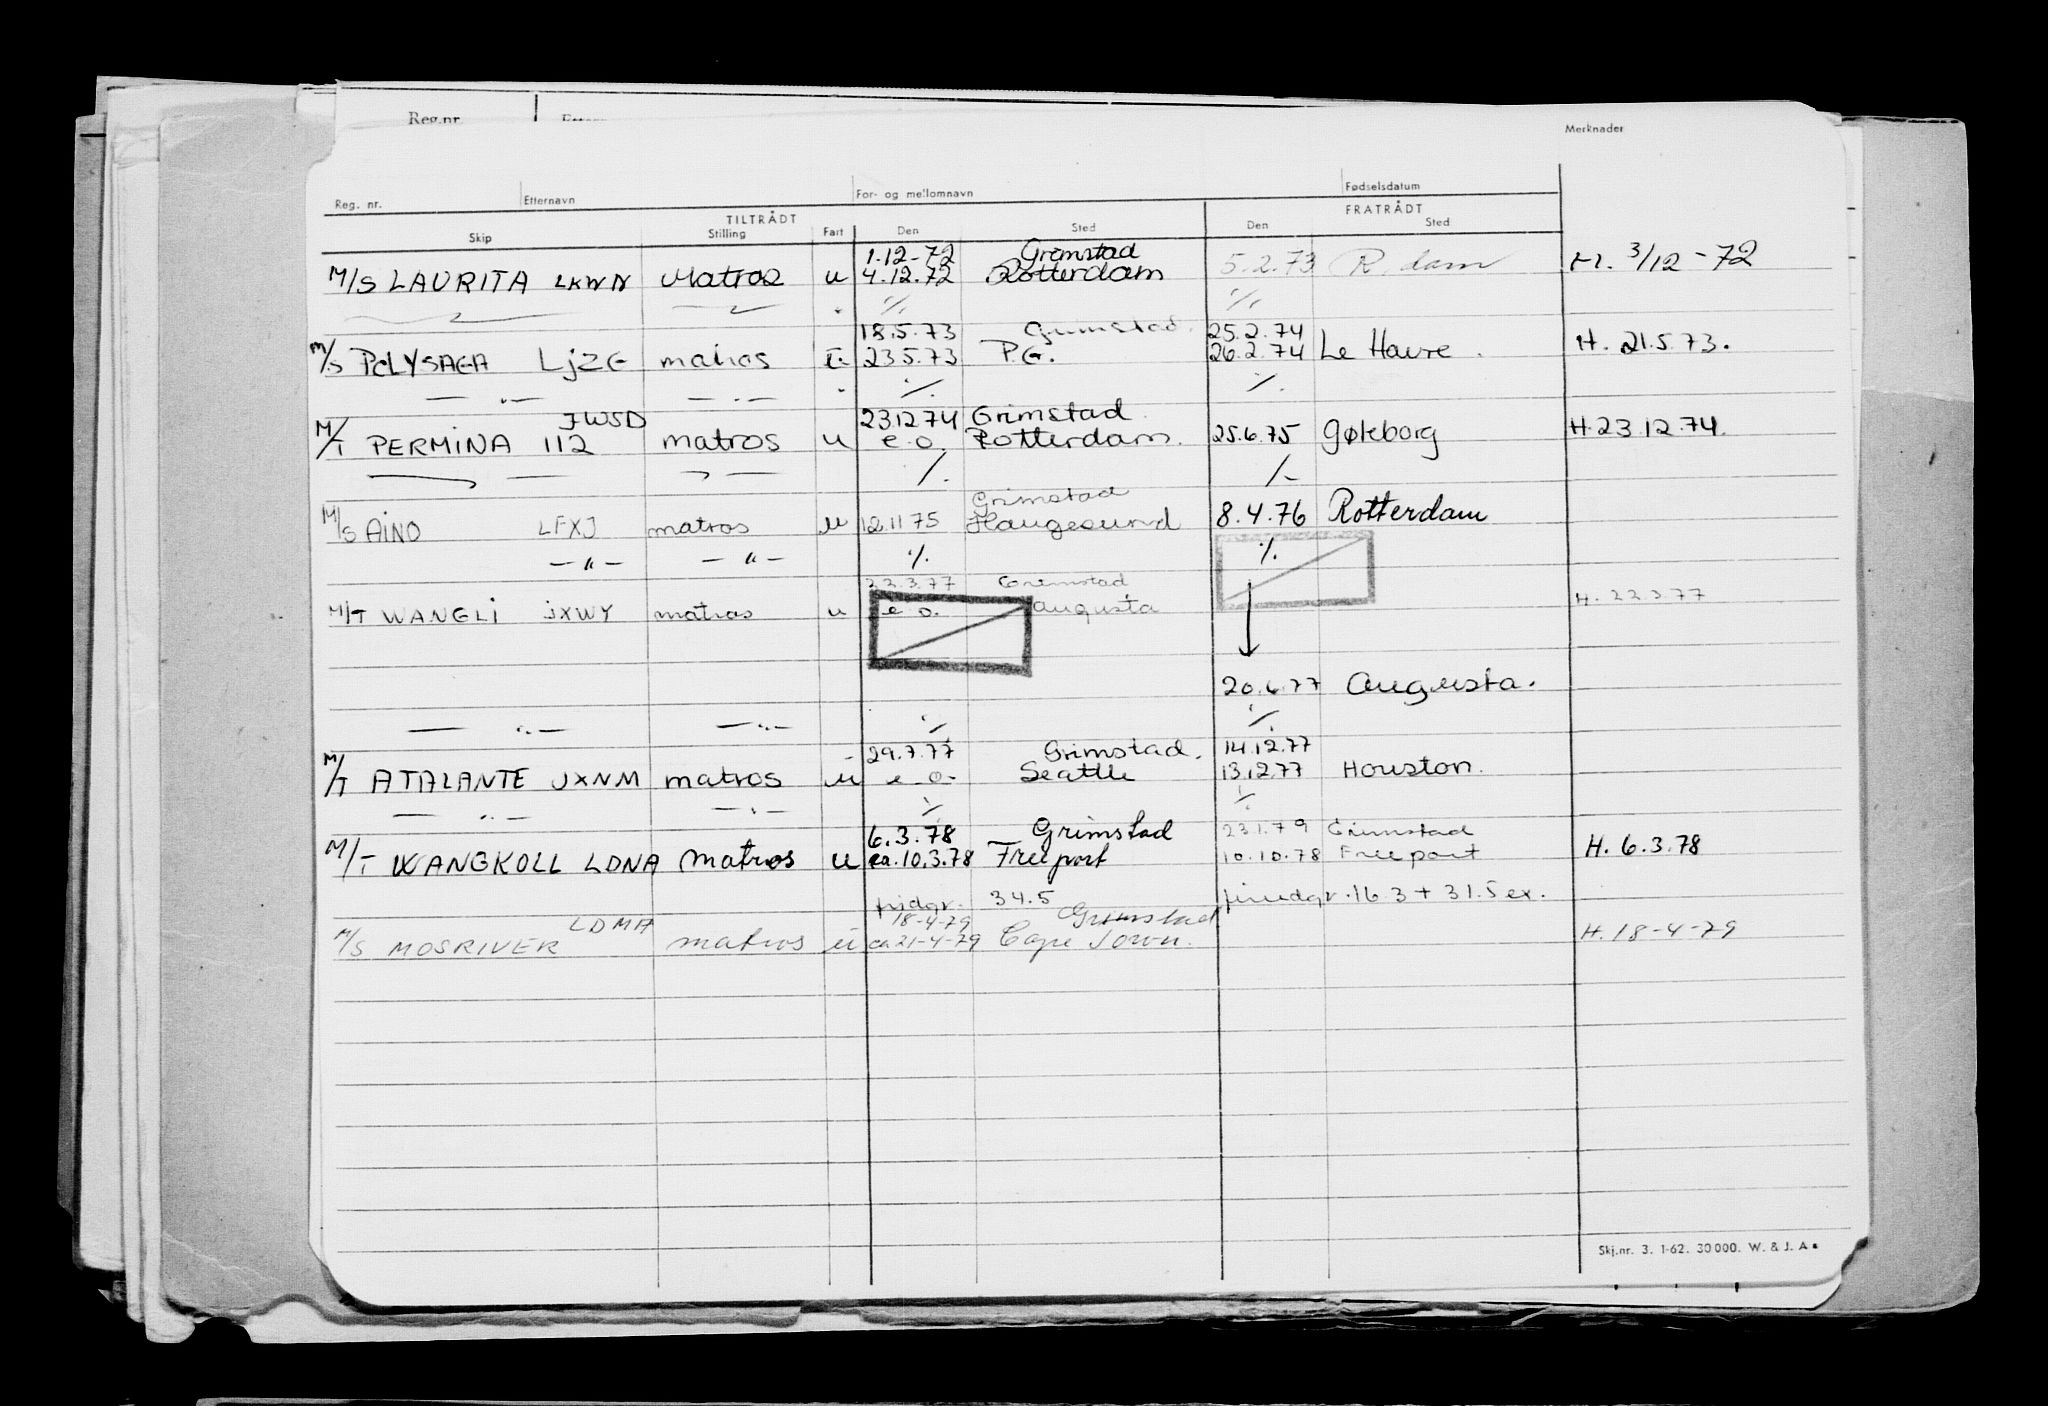 Reg.nr.
Merknader
Reg. nr. Etternavn For- og mellomnavn Fødselsdatum
TILTRÅDT FRATRÅDT
Skip Stilling Fart Den Sted Den Sted
1.12-72 Grimstad
M/S LAURITA LKWN Matros u 4.12.72 Rotterdam 5.2.73 R.dam H. 3/12-72
./. ./.
18.5.73 Grimstad. 25.2.74
M/S POLYSAGA LjZE matros u 23.5.73 P.G. 26.2.74 Le Havre. H. 21.5.73.
— " — — " — ./. ./.
JWSD 23.12.74 Grimstad
M/T PERMINA 112 matros u e.o. Rotterdam. 25.6.75 Gøteborg H.23.12.74.
./. ./.
Grimstad
M/S AINO LFXJ matros u 12.11.75 Haugesund 8.4.76 Rotterdam
— " — — " — ./. ./.
22.3.77 Grimstad
M/T WANGLI JXWY matros u e o. Augusta H. 22.3.77
20.6.77 Augusta.
— " — — " — ./. ./.
29.7.77 Grimstad. 14.12.77
M/T ATALANTE JXNM matros u e.o. Seattle 13.12.77 Houston.
— " — — " — ./. ./.
6.3.78 Grimstad 23.1.79 Grimstad
M/T WANGKOLL LDNA matros u ca.10.3.78 Freeport 10.10.78 Freeport H. 6.3.78
34.5 16.3 + 31.5 ex.
LDMA 18-4-79 Grimstad
M/S MOSRIVER matros u ca 21-4-79 Cape Town. H. 18-4-79
Skj.nr. 3. 1-62. 30 000. W. & J. A s